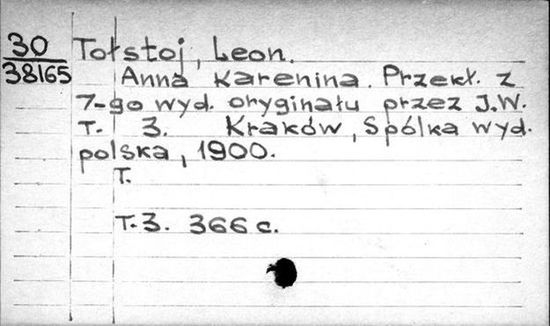 30 Tołstoj, Leon.
38165 Anna Karenina. Przekł. z
7-go wyd. oryginału przez J.W.
T. 3. Kraków, Spólka wyd.
polska, 1900.
T.
T.3. 366 c.